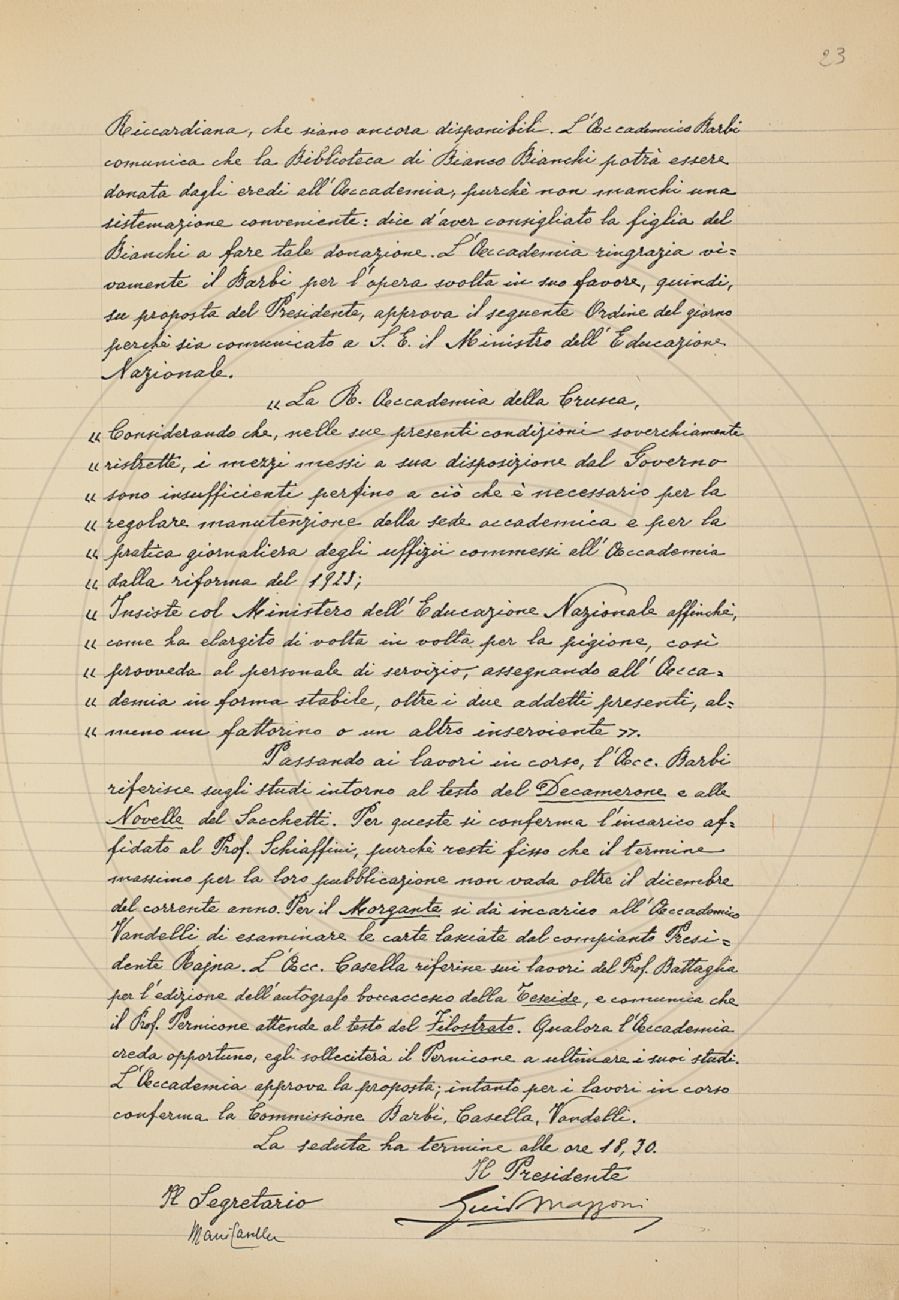 23
Riccardiana, che siano ancora disponibili. L'Accademico Barbi
comunica che la Biblioteca di Bianco Bianchi potrà essere
donata dagli eredi all'Accademia, purchè non manchi una
sistemazione conveniente: dice d'aver consigliato la figlia del
Bianchi a fare tale donazione. L'Accademia ringrazia vi=
vamente il Barbi per l'opera svolta in suo favore, quindi,
su proposta del Presidente, approva il seguente Ordine del giorno
perchè sia comunicato a S. E. il Ministro dell'Educazione
Nazionale.
« La R. Accademia della Crusca,
« Considerando che, nelle sue presenti condizioni soverchiamente
« ristrette, i mezzi messi a sua disposizione dal Governo
« sono insufficienti perfino a ciò che è necessario per la
« regolare manutenzione della sede accademica e per la
« pratica giornaliera degli uffizii commessi all'Accademia
« dalla riforma del 1923;
« Insiste col Ministero dell'Educazione Nazionale affinchè,
« come ha elargito di volta in volta per la pigione, così
« provveda al personale di servizio, assegnando all'Acca=
« demia in forma stabile, oltre i due addetti presenti, al=
« meno un fattorino o un altro inserviente ».
Passando ai lavori in corso, l'Acc. Barbi
riferisce sugli studi intorno al testo del Decamerone e alle
Novelle del Sacchetti. Per queste si conferma l'incarico af=
fidato al Prof. Schiaffini, purchè resti fisso che il termine
massimo per la loro pubblicazione non vada oltre il dicembre
del corrente anno. Per il Morgante si dà incarico all'Accademico
Vandelli di esaminare le carte lasciate dal compianto Presi=
dente Rajna. L'Acc. Casella riferisce sui lavori del Prof. Battaglia
per l'edizione dell'autografo boccaccesco della Teseide, e comunica che
il Prof. Pernicone attende al testo del Filostrato. Qualora l'Accademia
creda opportuno, egli solleciterà il Pernicone a ultimare i suoi studi.
L'Accademia approva la proposta; intanto per i lavori in corso
conferma la Commissione Barbi, Casella, Vandelli.
La seduta ha termine alle ore 18,30.
Il Presidente
Il Segretario
Guido Mazzoni
Mario Casella